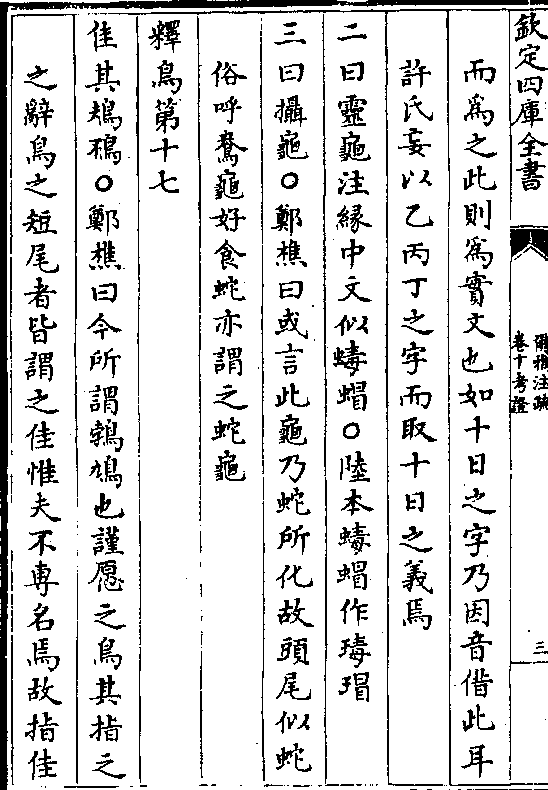 欽定四庫全書
爾雅注疏
卷十考證
三
而為之此則為實文也如十日之字乃因音借此耳
許氏妄以乙丙丁之字而取十日之義焉
二曰靈龜注緣中文似蝳蝐○陸本蝳蝐作瑇瑁
三曰攝龜○鄭樵曰或言此龜乃蛇所化故頭尾似蛇
俗呼鴦龜好食蛇亦謂之蛇龜
釋鳥第十七
隹其鳺鴀○鄭樵曰今所謂鵓鳩也謹愿之鳥其指之
之辭鳥之短尾者皆謂之隹惟夫不專名焉故指隹